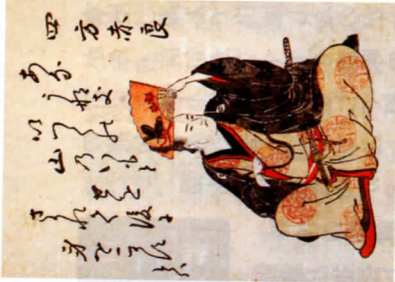 四方赤良
あなうなき
いつくの
山乃いもと
せを
さかれて後に
身をこかすとは